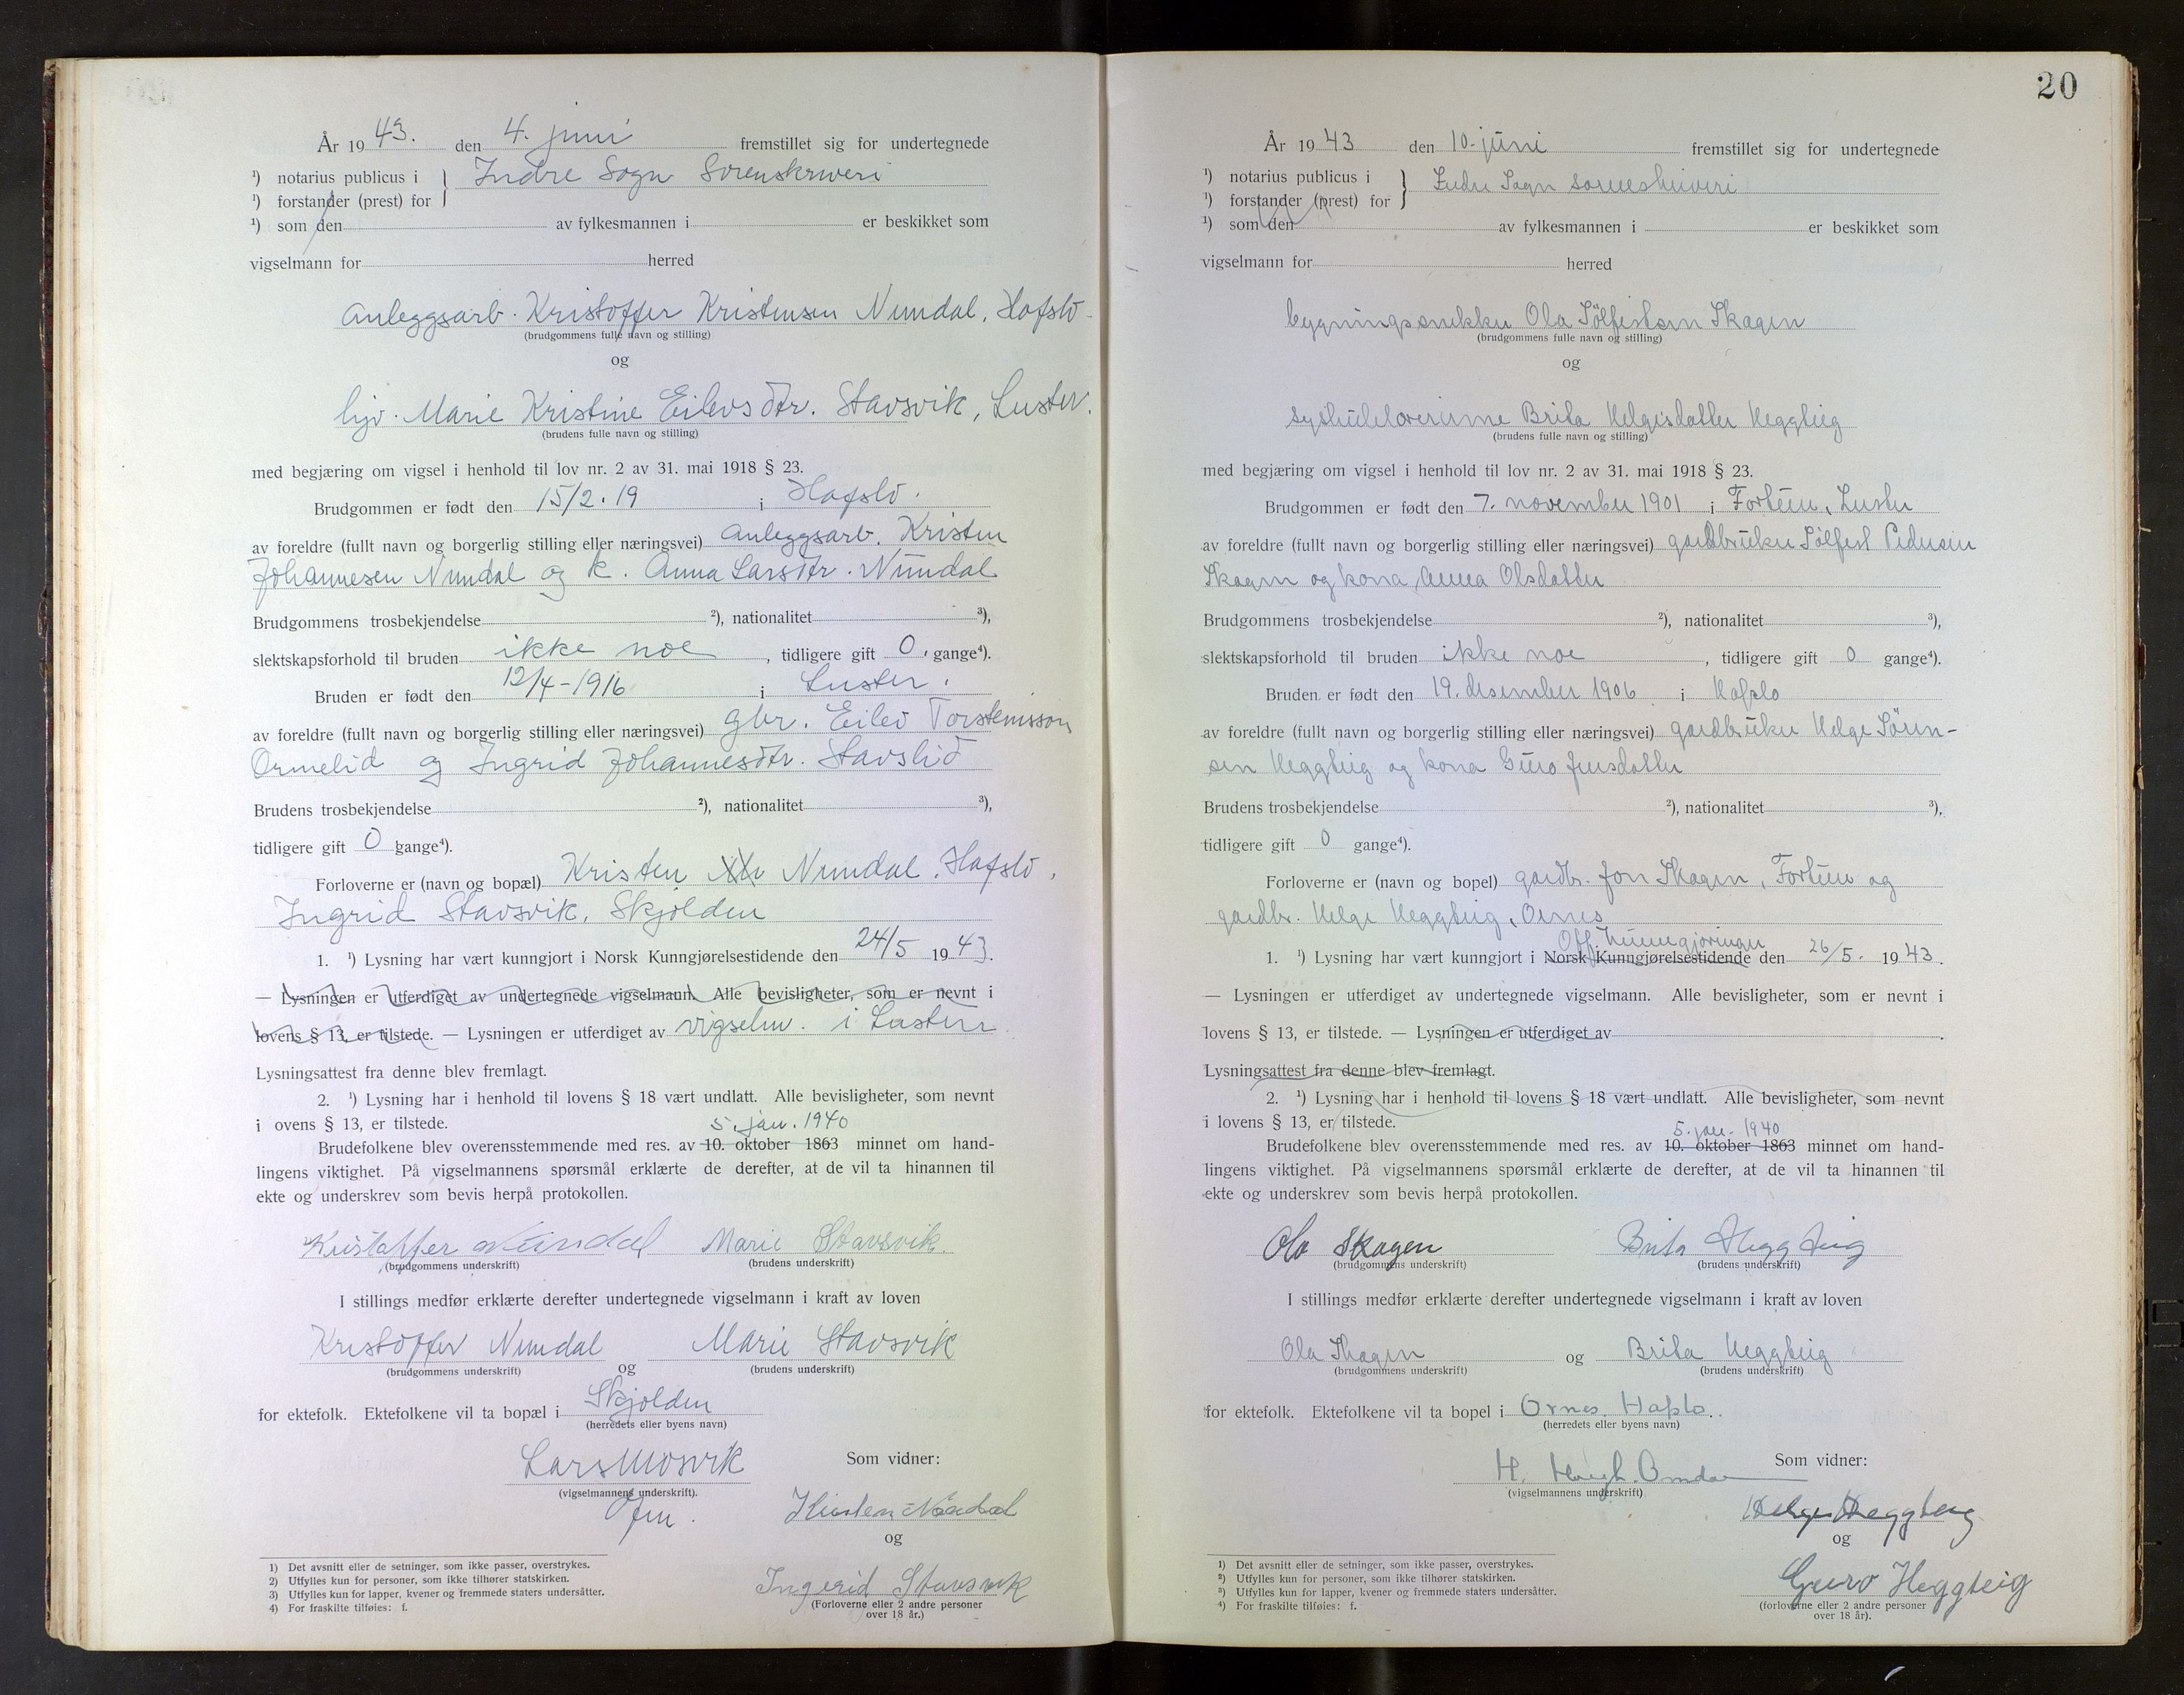 År 19 43. den 4. juni fremstillet sig for undertegnede
¹) notarius publicus i } Indre Sogn Sorenskriveri
¹) forstander (prest) for
¹) som den av fylkesmannen i er beskikket som
vigselmann for herred
Anleggsarb. Kristoffer Kristensen Nundal, Hafslo
(brudgommens fulle navn og stilling)
og
Marie Kristine Eilevsdtr. Stavsvik, Luster.
(brudens fulle navn og stilling)
med begjæring om vigsel i henhold til lov nr. 2 av 31. mai 1918 § 23.
Brudgommen er født den 15/2.19 i Hafslo.
av foreldre (fullt navn og borgerlig stilling eller næringsvei) Anleggsarb. Kristen
Johannesen Nundal og k. Anna Larsdtr. Nundal
Brudgommens trosbekjendelse ²), nationalitet ³),
slektskapsforhold til bruden ikke noe, tidligere gift 0, gange⁴).
Bruden er født den 12/4-1916 i Luster.
av foreldre (fullt navn og borgerlig stilling eller næringsvei) gbr. Eilev Torsteinsson
Ormelid og Ingrid Johannesdtr.
Brudens trosbekjendelse ²), nationalitet ³),
tidligere gift 0 gange⁴).
Forloverne er (navn og bopæl) Kristen Nundal, Hafslo,
Ingrid Stavsvik, Skjolden
1. ¹) Lysning har vært kunngjort i Norsk Kunngjørelsestidende den 24/5 19 43.
— Lysningen er utferdiget av undertegnede vigselmann. Alle bevisligheter, som er nevnt i
lovens § 13, er tilstede. — Lysningen er utferdiget av vigselm. i Luster
Lysningsattest fra denne blev fremlagt.
2. ¹) Lysning har i henhold til lovens § 18 vært undlatt. Alle bevisligheter, som nevnt
i ovens § 13, er tilstede.
5. jan. 1940
Brudefolkene blev overensstemmende med res. av 10. oktober 1863 minnet om hand-
lingens viktighet. På vigselmannens spørsmål erklærte de derefter, at de vil ta hinannen til
ekte og underskrev som bevis herpå protokollen.
Kristoffer Nundal Marie Stavsvik.
(brudgommens underskrift) (brudens underskrift)
I stillings medfør erklærte derefter undertegnede vigselmann i kraft av loven
Kristoffer Nundal og Marie Stavsvik
(brudgommens underskrift) (brudens underskrift)
for ektefolk. Ektefolkene vil ta bopæl i Skjolden
(herredets eller byens navn)
Lars Mosvik Som vidner:
(vigselmannens underskrift).
Kristen Nundal
og
Ingerid Stavsvik
(Forloverne eller 2 andre personer
over 18 år.)
1) Det avsnitt eller de setninger, som ikke passer, overstrykes.
2) Utfylles kun for personer, som ikke tilhører statskirken.
3) Utfylles kun for lapper, kvener og fremmede staters undersåtter.
4) For fraskilte tilføies: f.
20
År 19 43 den 10. juni fremstillet sig for undertegnede
¹) notarius publicus i } Indre Sogn sorenskriveri
¹) forstander (prest) for
¹) som den av fylkesmannen i er beskikket som
vigselmann for herred
bygningssnikker Ola Sølfestsen Skagen
(brudgommens fulle navn og stilling)
og
syskulelærerinne Brita Helgesdatter Heggteig
(brudens fulle navn og stilling)
med begjæring om vigsel i henhold til lov nr. 2 av 31. mai 1918 § 23.
Brudgommen er født den 7. november 1901 i Fortun, Luster
av foreldre (fullt navn og borgerlig stilling eller næringsvei) gardbruker Sølfest Pedersen
Skagen og kona, Anna Olsdatter
Brudgommens trosbekjendelse ²), nationalitet ³),
slektskapsforhold til bruden ikke noe, tidligere gift 0 gange⁴).
Bruden er født den 19. desember 1906 i Hafslo
av foreldre (fullt navn og borgerlig stilling eller næringsvei) gardbruker Helge Søren-
sen Heggteig og kona Guro Jensdatter
Brudens trosbekjendelse ²), nationalitet ³),
tidligere gift 0 gange⁴).
Forloverne er (navn og bopel) gardbr. Jon Skagen, Fortun og
gardbr. Helge Heggteig, Ornes
Off. kunngjøringer
1. ¹) Lysning har vært kunngjort i Norsk Kunngjørelsestidende den 26/5. 19 43.
— Lysningen er utferdiget av undertegnede vigselmann. Alle bevisligheter, som er nevnt i
lovens § 13, er tilstede. — Lysningen er utferdiget av
Lysningsattest fra denne blev fremlagt.
2. ¹) Lysning har i henhold til lovens § 18 vært undlatt. Alle bevisligheter, som nevnt
i lovens § 13, er tilstede.
5. jan. 1940
Brudefolkene blev overensstemmende med res. av 10. oktober 1863 minnet om hand-
lingens viktighet. På vigselmannens spørsmål erklærte de derefter, at de vil ta hinannen til
ekte og underskrev som bevis herpå protokollen.
Ola Skagen Brita Heggteig
(brudgommens underskrift) (brudens underskrift)
I stillings medfør erklærte derefter undertegnede vigselmann i kraft av loven
Ola Skagen og Brita Heggteig
(brudgommens underskrift) (brudens underskrift)
for ektefolk. Ektefolkene vil ta bopel i Ornes, Hafslo.
(herredets eller byens navn)
H. Som vidner:
(vigselmannens underskrift)
Helge Heggteig
og
Guro Heggteig
(forloverne eller 2 andre personer
over 18 år).
¹) Det avsnitt eller de setninger, som ikke passer, overstrykes.
²) Utfylles kun for personer, som ikke tilhører statskirken.
³) Utfylles kun for lapper, kvener og fremmede staters undersåtter.
⁴) For fraskilte tilføies: f.